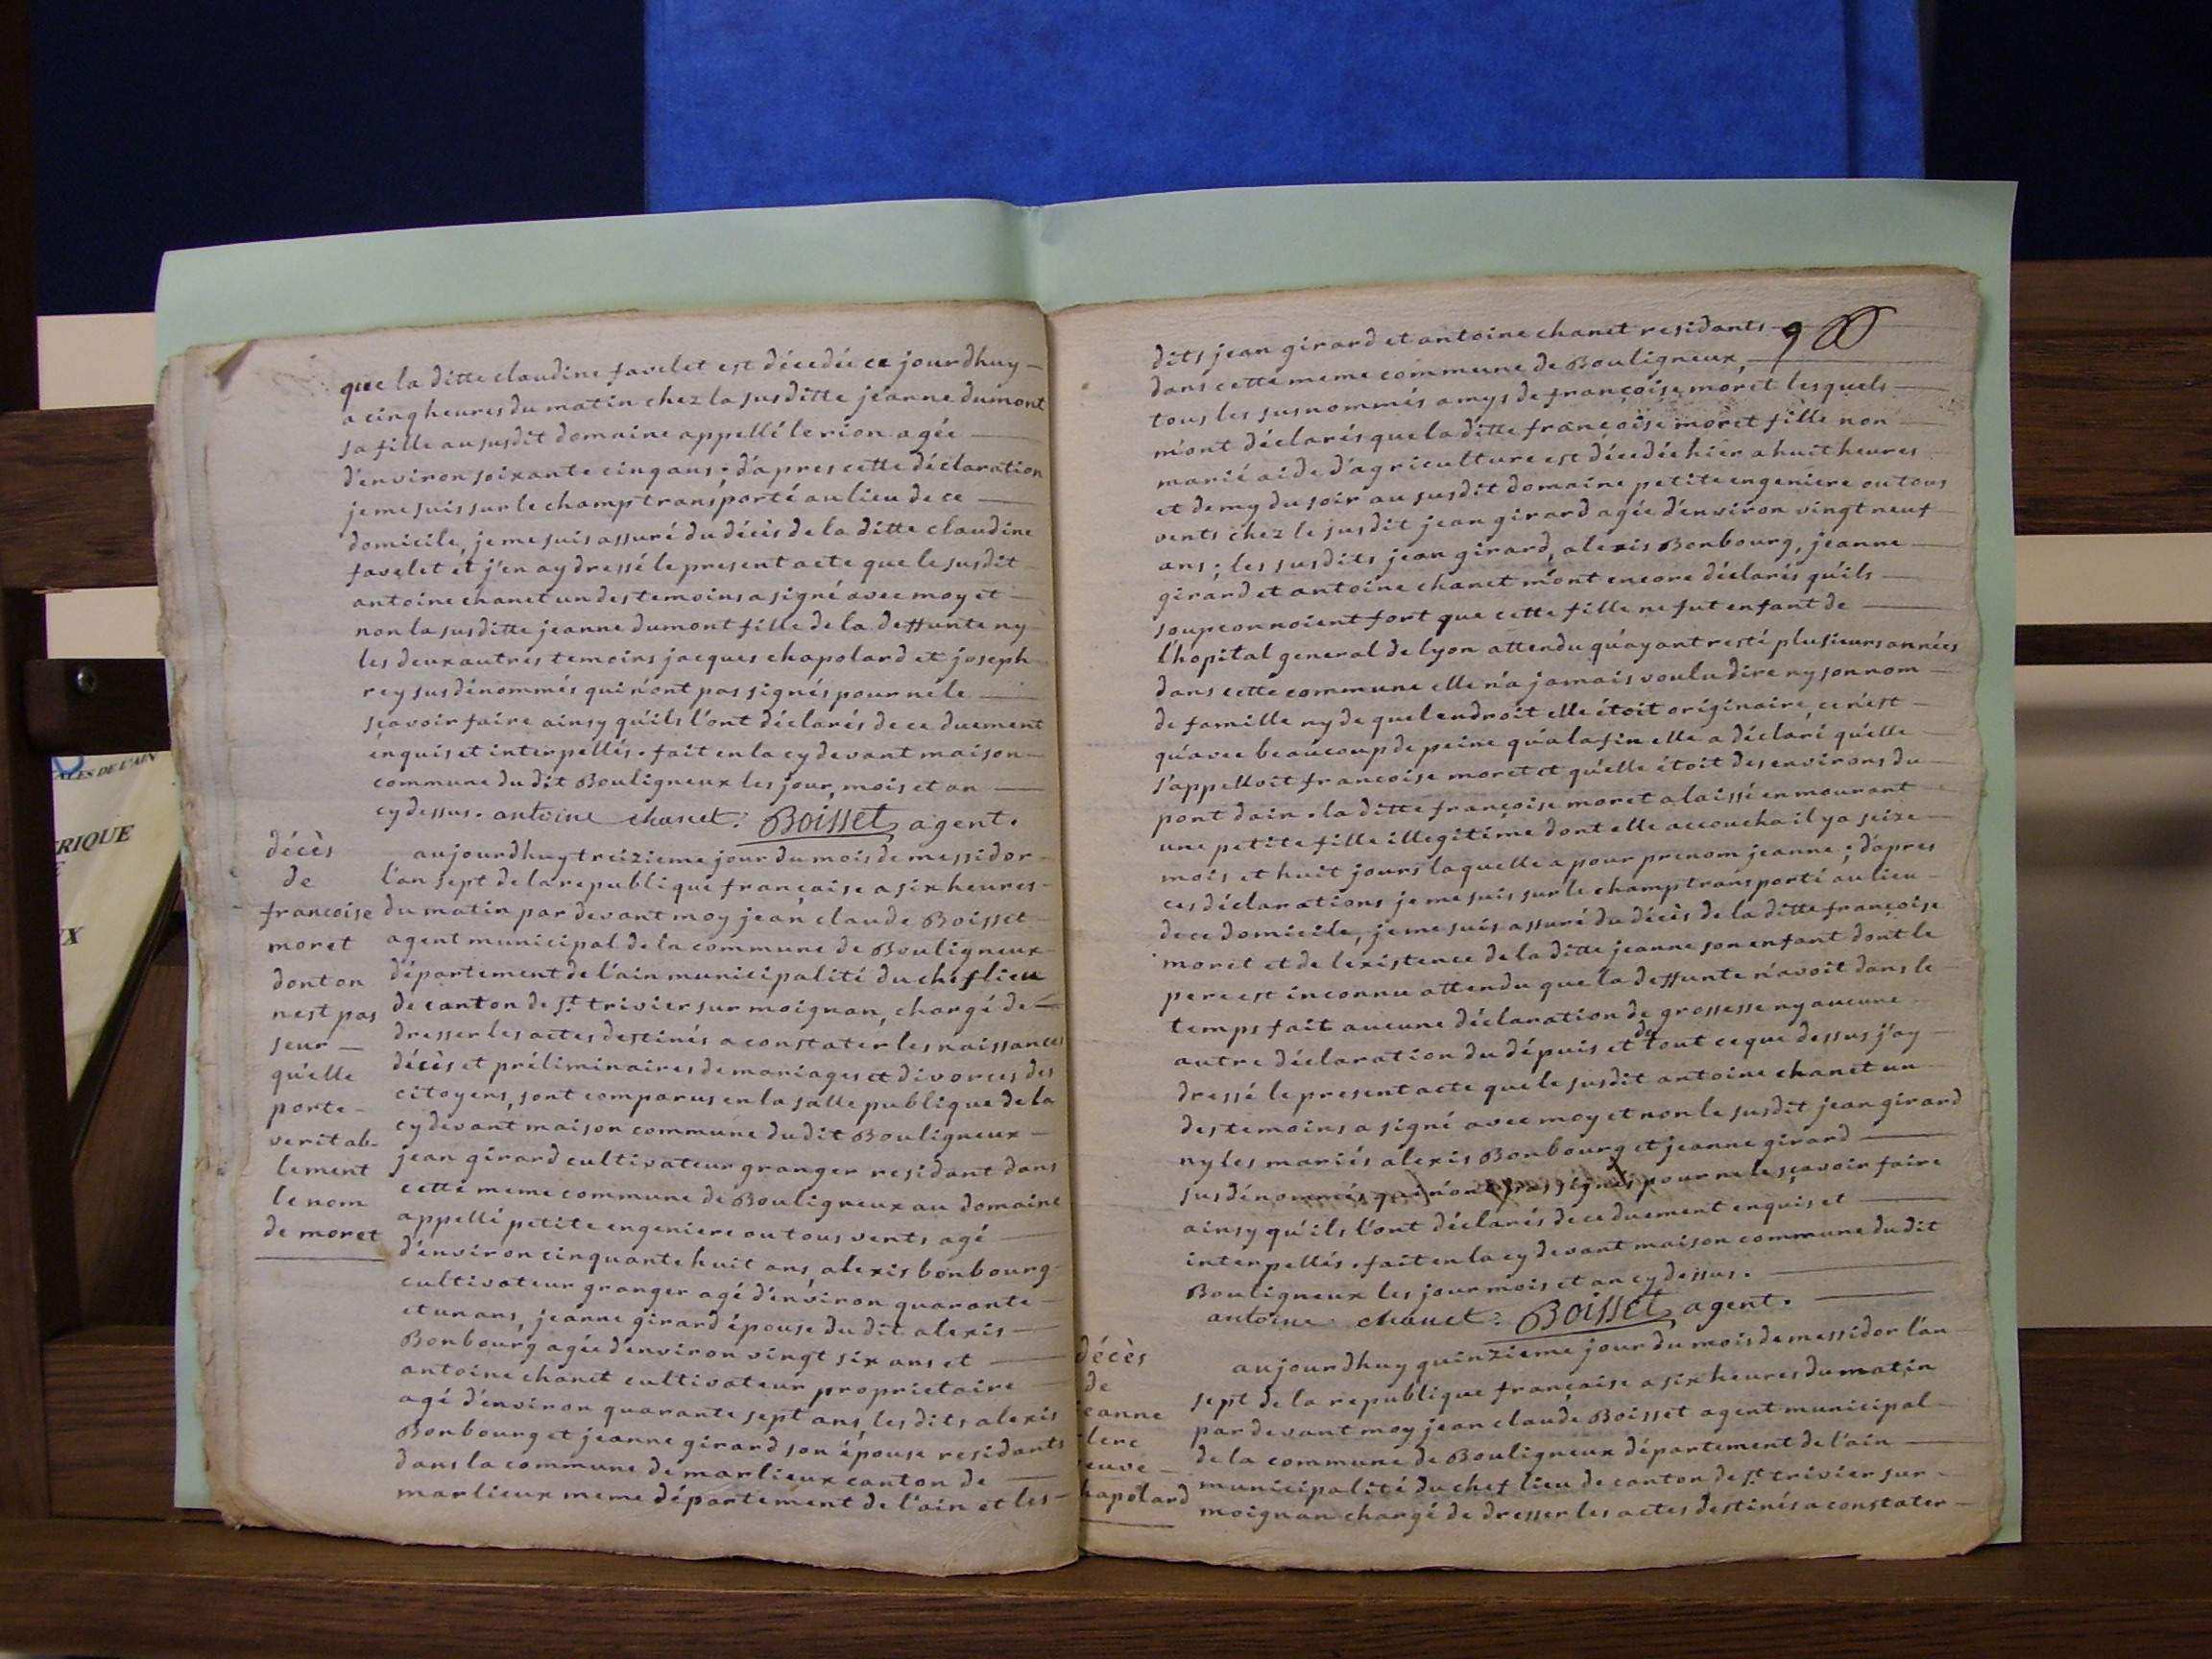 que la ditte claudine favelet est décédée ce jourdhuy -
a cinq heures du matin chez la susditte jeanne dumont
sa fille au susdit domaine appellé le rion agée
d'environ soixante cinq ans; d'apres cette déclaration
je me suis sur le champ transporté au lieu de ce
domicile, je me suis assuré du décès de la ditte claudine
favelet et j'en ay dressé le present acte que le susdit
antoine chanet un des temoins a signé avec moy et
non la susditte jeanne dumont fille de la deffunte ny
les deux autres temoins jacques chapolard et joseph
rey susdénommés qui n'ont pas signés pour ne le
sçavoir faire ainsy qu'ils l'ont déclarés de ce duement
enquis et interpellés. fait en la cy devant maison
commune du dit Bouligneux les jour, mois et an
cy dessus. antoine chanet: Boisset agent.
décès
de
francoise
moret
dont on
nest pas
seur
qu'elle
porte
veritab-
lement
le nom
de moret
aujourdhuy treizieme jour du mois de messidor
l'an sept de la republique française a six heures
du matin par devant moy jean claude Boisset
agent municipal de la commune de Bouligneux
département de l'ain municipalité du chef lieu
de canton de st. trivier sur moignan, chargé de
dresser les actes destinés a constater les naissances
décès et préliminaires de mariages et divorces des
citoyens, sont comparus en la salle publique de la
cy devant maison commune dudit Bouligneux
jean girard cultivateur granger residant dans
cette meme commune de Bouligneux au domaine
appellé petite engeniere ou tous vents agé
d'environ cinquante huit ans, alexis bonbourg
cultivateur granger agé d'environ quarante
et un ans, jeanne girard épouse du dit alexis
Bonbourg agée d'environ vingt six ans et
antoine chanet cultivateur proprietaire
agé d'environ quarante sept ans, les dits alexis
Bonbourg et jeanne girard son épouse residants
dans la commune de marlieux canton de
marlieux meme département de l'ain et les
dits jean girard et antoine chanet residants 9
dans cette meme commune de Bouligneux,
tous les susnommés amys de françoise moret lesquels
m'ont déclarés que la ditte françoise moret fille non
marié aide d'agriculture est décédée hier a huit heures
et demy du soir au susdit domaine petite engeniere ou tous
vents chez le susdit jean girard agée d'environ vingt neuf
ans; les susdits jean girard, alexis Bonbourg, jeanne
girard et antoine chanet m'ont encore déclarés qu'ils
soupconnoient fort que cette fille ne fut enfant de
l'hopital general de lyon attendu qu'ayant resté plusieurs années
dans cette commune elle n'a jamais voulu dire ny son nom
de famille ny de quel endroit elle étoit originaire, ce n'est
qu'avec beaucoup de peine qu'a la fin elle a déclaré qu'elle
s'appelloit francoise moret et qu'elle étoit des environs du
pont dain. la ditte françoise moret a laissé en mourant
une petite fille illegitime dont elle accoucha il y a seize
mois et huit jours laquelle a pour prenom jeanne; d'apres
ces déclarations je me suis sur le champ transporté au lieu
de ce domicile, je me suis assuré du décès de la ditte françoise
moret et de l'existence de la ditte jeanne son enfant dont le
pere est inconnu attendu que la deffunte n'avoit dans le
temps fait aucune déclaration de grossesse ny aucune
autre déclaration du dépuis et du tout ce que dessus j'ay
dressé le present acte que le susdit antoine chanet un
des temoins a signé avec moy et non le susdit jean girard
ny les mariés alexis Bonbourg et jeanne girard
susdénommés qui n'ont pas signés pour ne le sçavoir faire
ainsy qu'ils l'ont déclarés de ce duement enquis et
interpellés. fait en la cy devant maison commune du dit
Bouligneux les jour mois et an cy dessus.
antoine chanet: Boisset agent.
décès
de
eanne
lerc
euve
hapolard
aujourdhuy quinzieme jour du mois de messidor l'an
sept de la republique française a six heures du matin
par devant moy jean claude Boisset agent municipal
de la commune de Bouligneux département de l'ain
municipalité du chef lieu de canton de st. trivier sur
moignan chargé de dresser les actes destinés a constater
ALES DE L'AIN
RIQUE
X